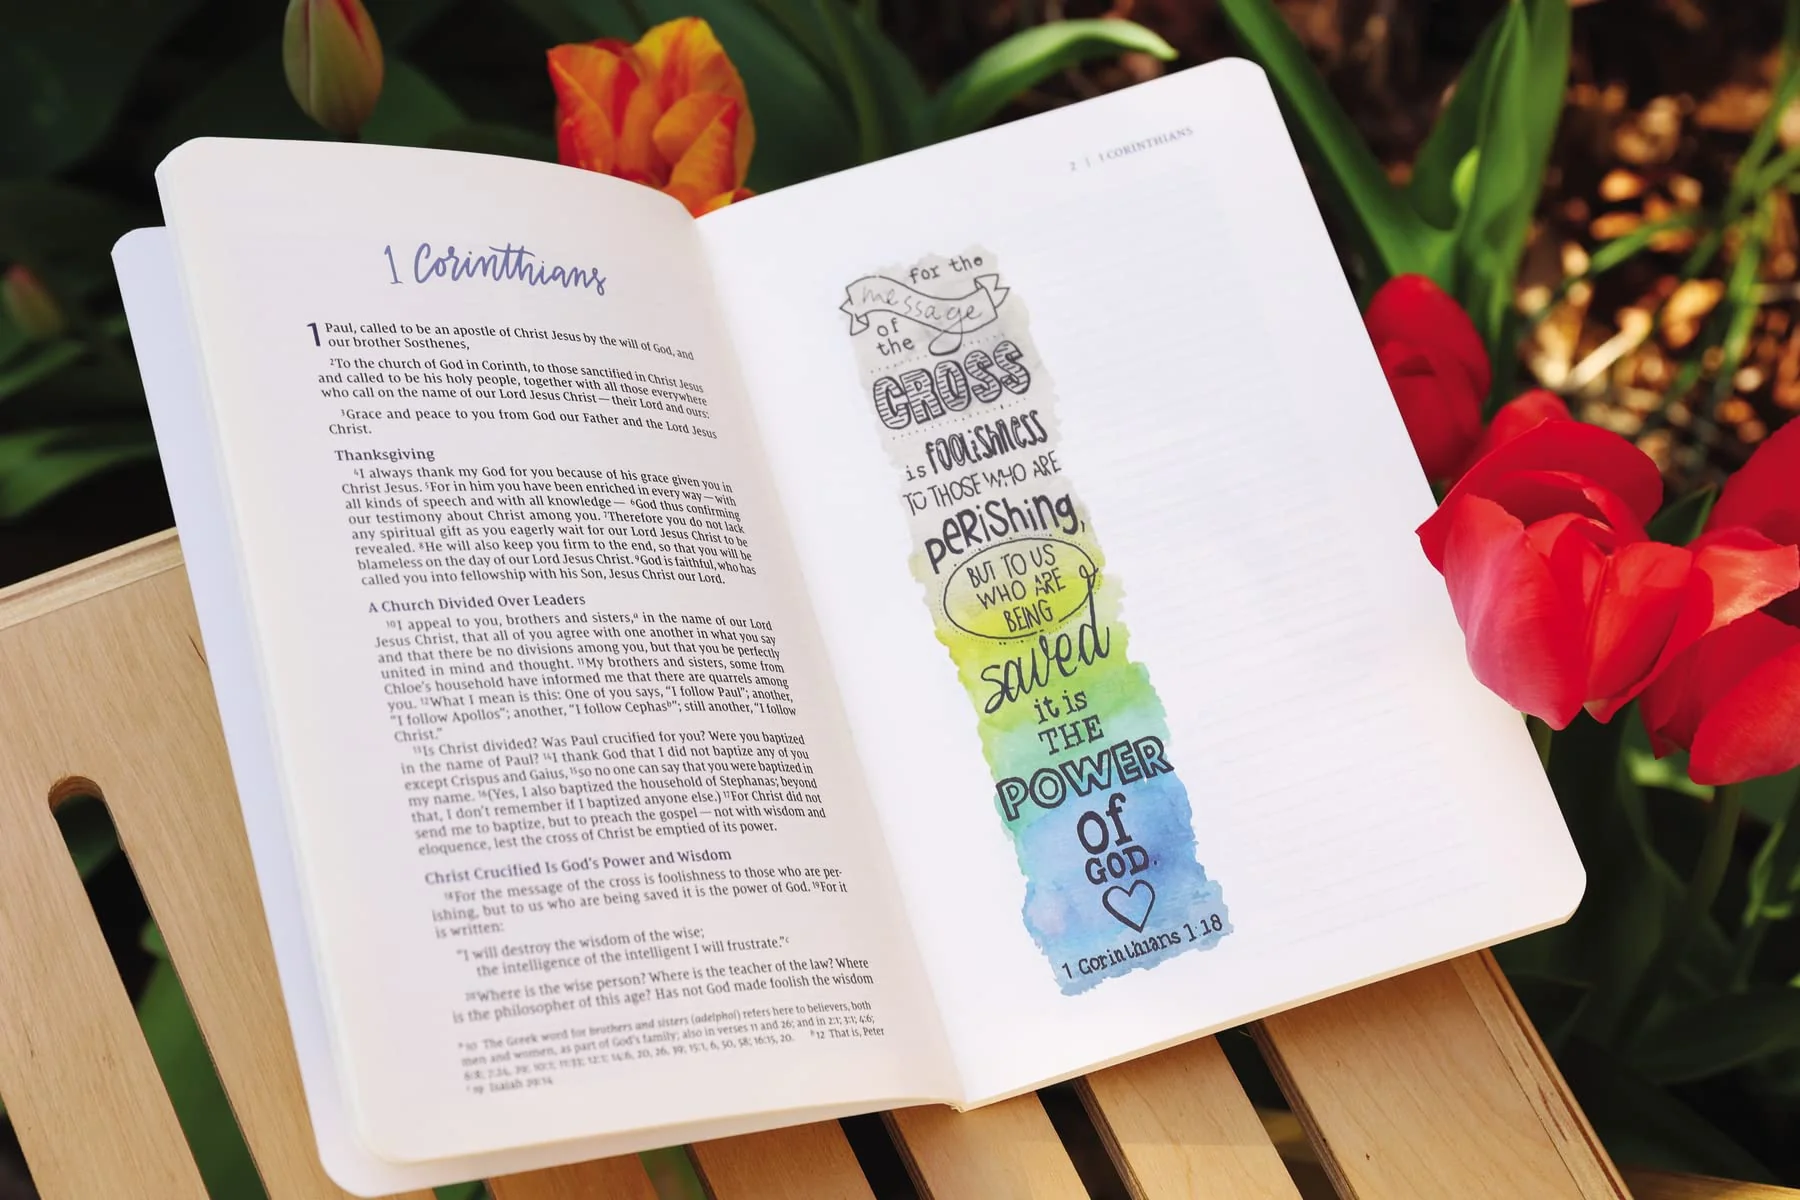 1 Corinthians
1 Paul, called to be an apostle of Christ Jesus by the will of God, and
our brother Sosthenes,
2To the church of God in Corinth, to those sanctified in Christ Jesus
and called to be his holy people, together with all those everywhere
who call on the name of our Lord Jesus Christ — their Lord and ours:
3Grace and peace to you from God our Father and the Lord Jesus
Christ.
Thanksgiving
4I always thank my God for you because of his grace given you in
Christ Jesus. 5For in him you have been enriched in every way — with
all kinds of speech and with all knowledge — 6God thus confirming
our testimony about Christ among you. 7Therefore you do not lack
any spiritual gift as you eagerly wait for our Lord Jesus Christ to be
revealed. 8He will also keep you firm to the end, so that you will be
blameless on the day of our Lord Jesus Christ. 9God is faithful, who has
called you into fellowship with his Son, Jesus Christ our Lord.
A Church Divided Over Leaders
10I appeal to you, brothers and sisters,a in the name of our Lord
Jesus Christ, that all of you agree with one another in what you say
and that there be no divisions among you, but that you be perfectly
united in mind and thought. 11My brothers and sisters, some from
Chloe's household have informed me that there are quarrels among
you. 12What I mean is this: One of you says, "I follow Paul"; another,
"I follow Apollos"; another, "I follow Cephasb"; still another, "I follow
Christ."
13Is Christ divided? Was Paul crucified for you? Were you baptized
in the name of Paul? 14I thank God that I did not baptize any of you
except Crispus and Gaius, 15so no one can say that you were baptized in
my name. 16(Yes, I also baptized the household of Stephanas; beyond
that, I don't remember if I baptized anyone else.) 17For Christ did not
send me to baptize, but to preach the gospel — not with wisdom and
eloquence, lest the cross of Christ be emptied of its power.
Christ Crucified Is God's Power and Wisdom
18For the message of the cross is foolishness to those who are per-
ishing, but to us who are being saved it is the power of God. 19For it
is written:
"I will destroy the wisdom of the wise;
the intelligence of the intelligent I will frustrate."c
20Where is the wise person? Where is the teacher of the law? Where
is the philosopher of this age? Has not God made foolish the wisdom
a 10 The Greek word for brothers and sisters (adelphoi) refers here to believers, both
men and women, as part of God's family; also in verses 11 and 26; and in 2:1; 3:1; 4:6;
6:8; 7:24, 29; 10:1; 11:33; 12:1; 14:6, 20, 26, 39; 15:1, 6, 50, 58; 16:15, 20. b 12 That is, Peter
c 19 Isaiah 29:14
2 | 1 CORINTHIANS
for the
message
of
the
CROSS
is foolishness
TO THOSE WHO ARE
perishing,
BUT TO US
WHO ARE
BEING
saved
it is
THE
POWER
of
GOD.
1 Corinthians 1:18